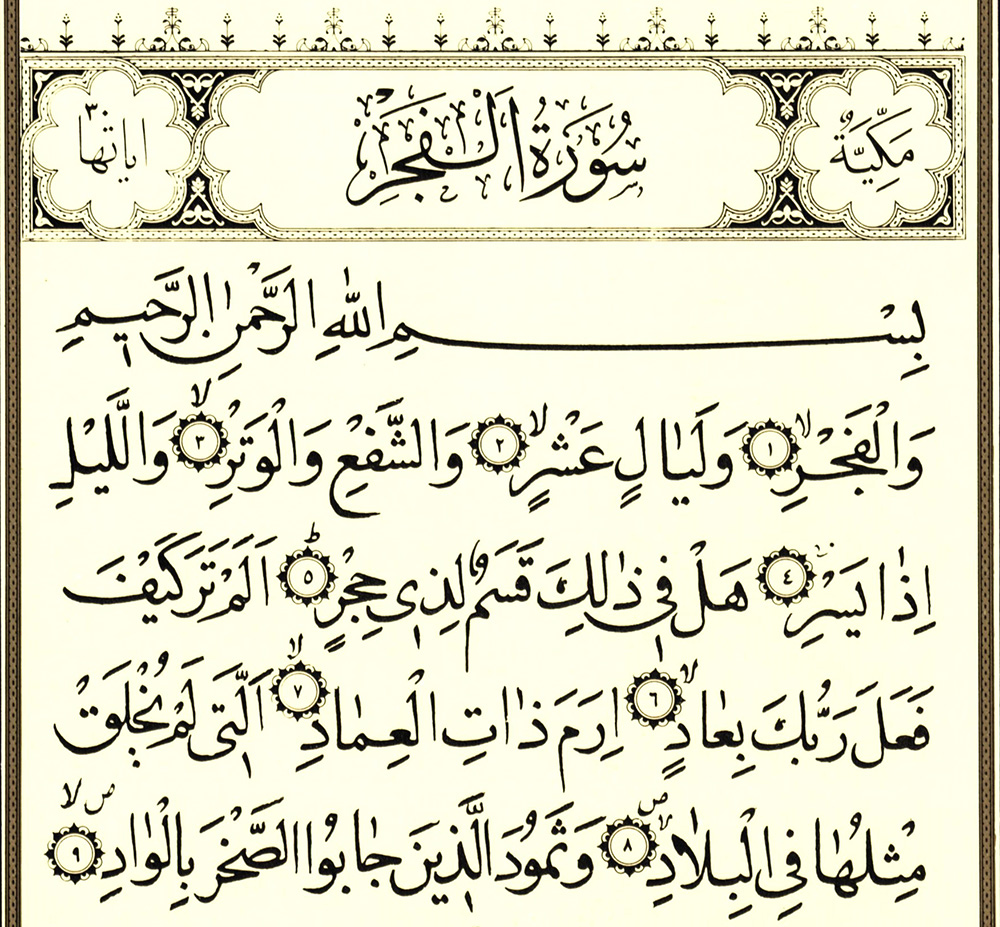 مَكِّيَّةٌ
سُورَةُ الْفَجْرِ
اياتها ٣٠
بِسْمِ اللّٰهِ الرَّحْمٰنِ الرَّحيمِ
وَالْفَجْرِۙ ١ وَلَيٰالٍ عَشْرٍۙ ٢ وَالشَّفْعِ وَالْوَتْرِۙ ٣ وَاللَّيْلِ
اِذٰا يَسْرِ ٤ هَلْ فى ذٰلِكَ قَسَمٌ لِذى حِجْرٍؕ ٥ اَلَمْ تَرَ كَيْفَ
فَعَلَ رَبُّكَ بِعٰادٍۙ ٦ اِرَمَ ذٰاتِ الْعِمٰادِۙ ٧ اَلَّتى لَمْ يُخْلَقْ
مِثْلُهٰا فِى الْبِلٰادِۙص ٨ وَثَمُودَ الَّذينَ جٰابُوا الصَّخْرَ بِالْوٰادِۙص ٩